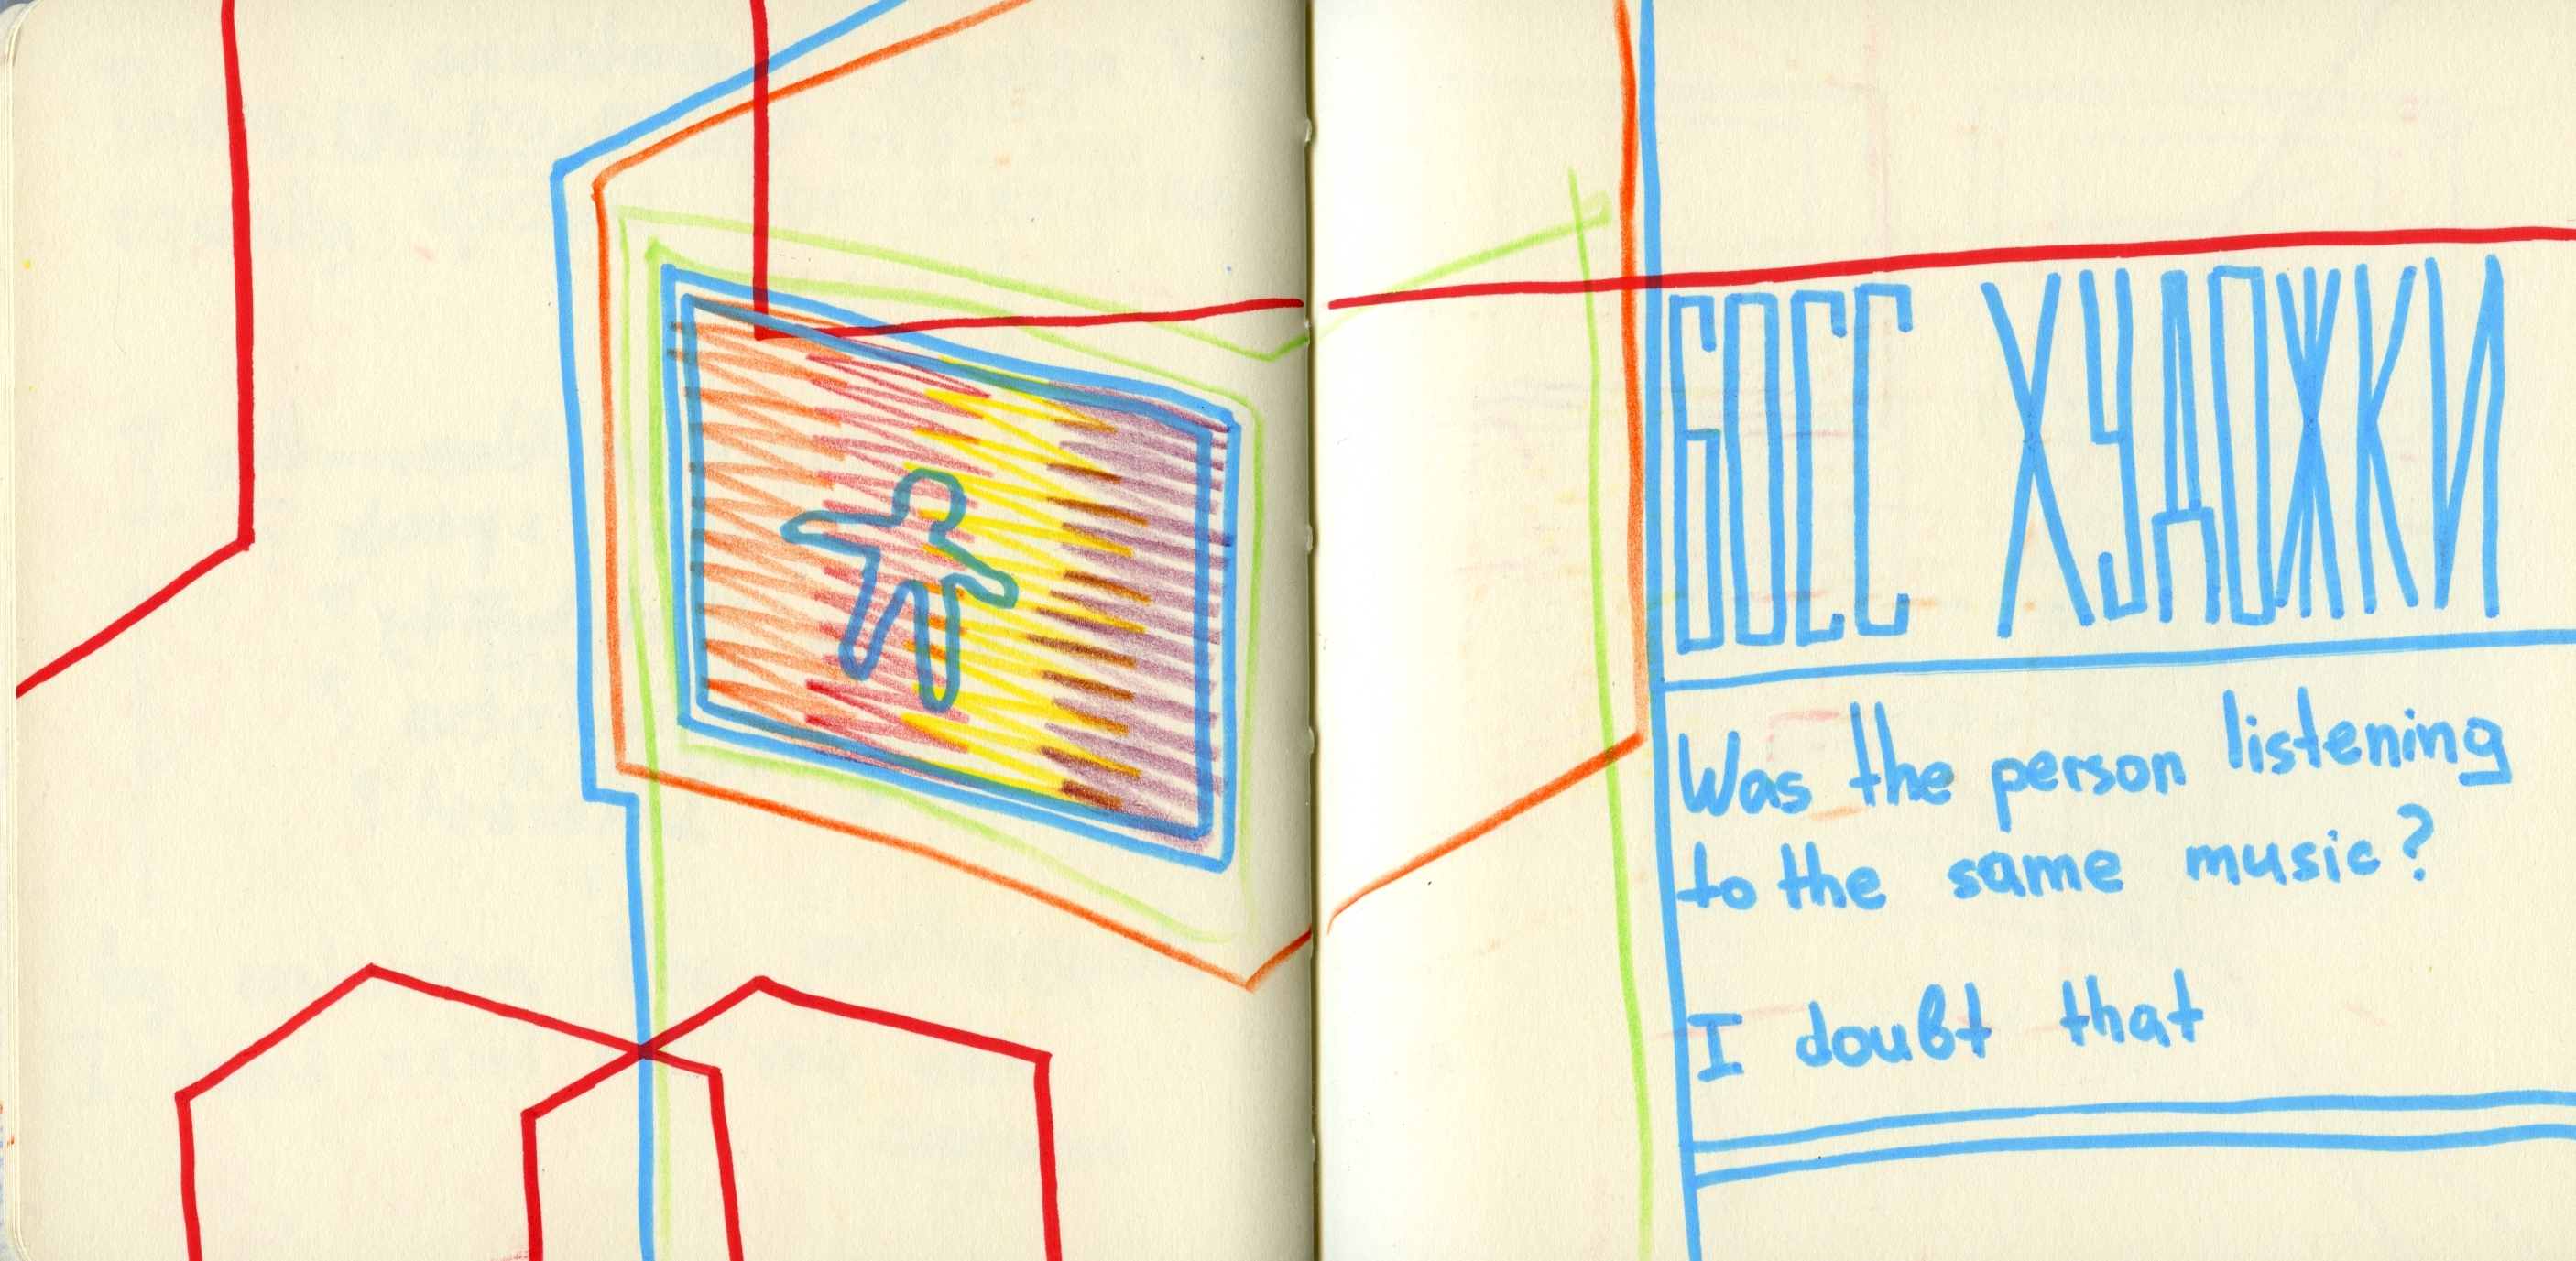 БОСС ХУДОЖКИ
Was the person listening
to the same music?
I doubt that